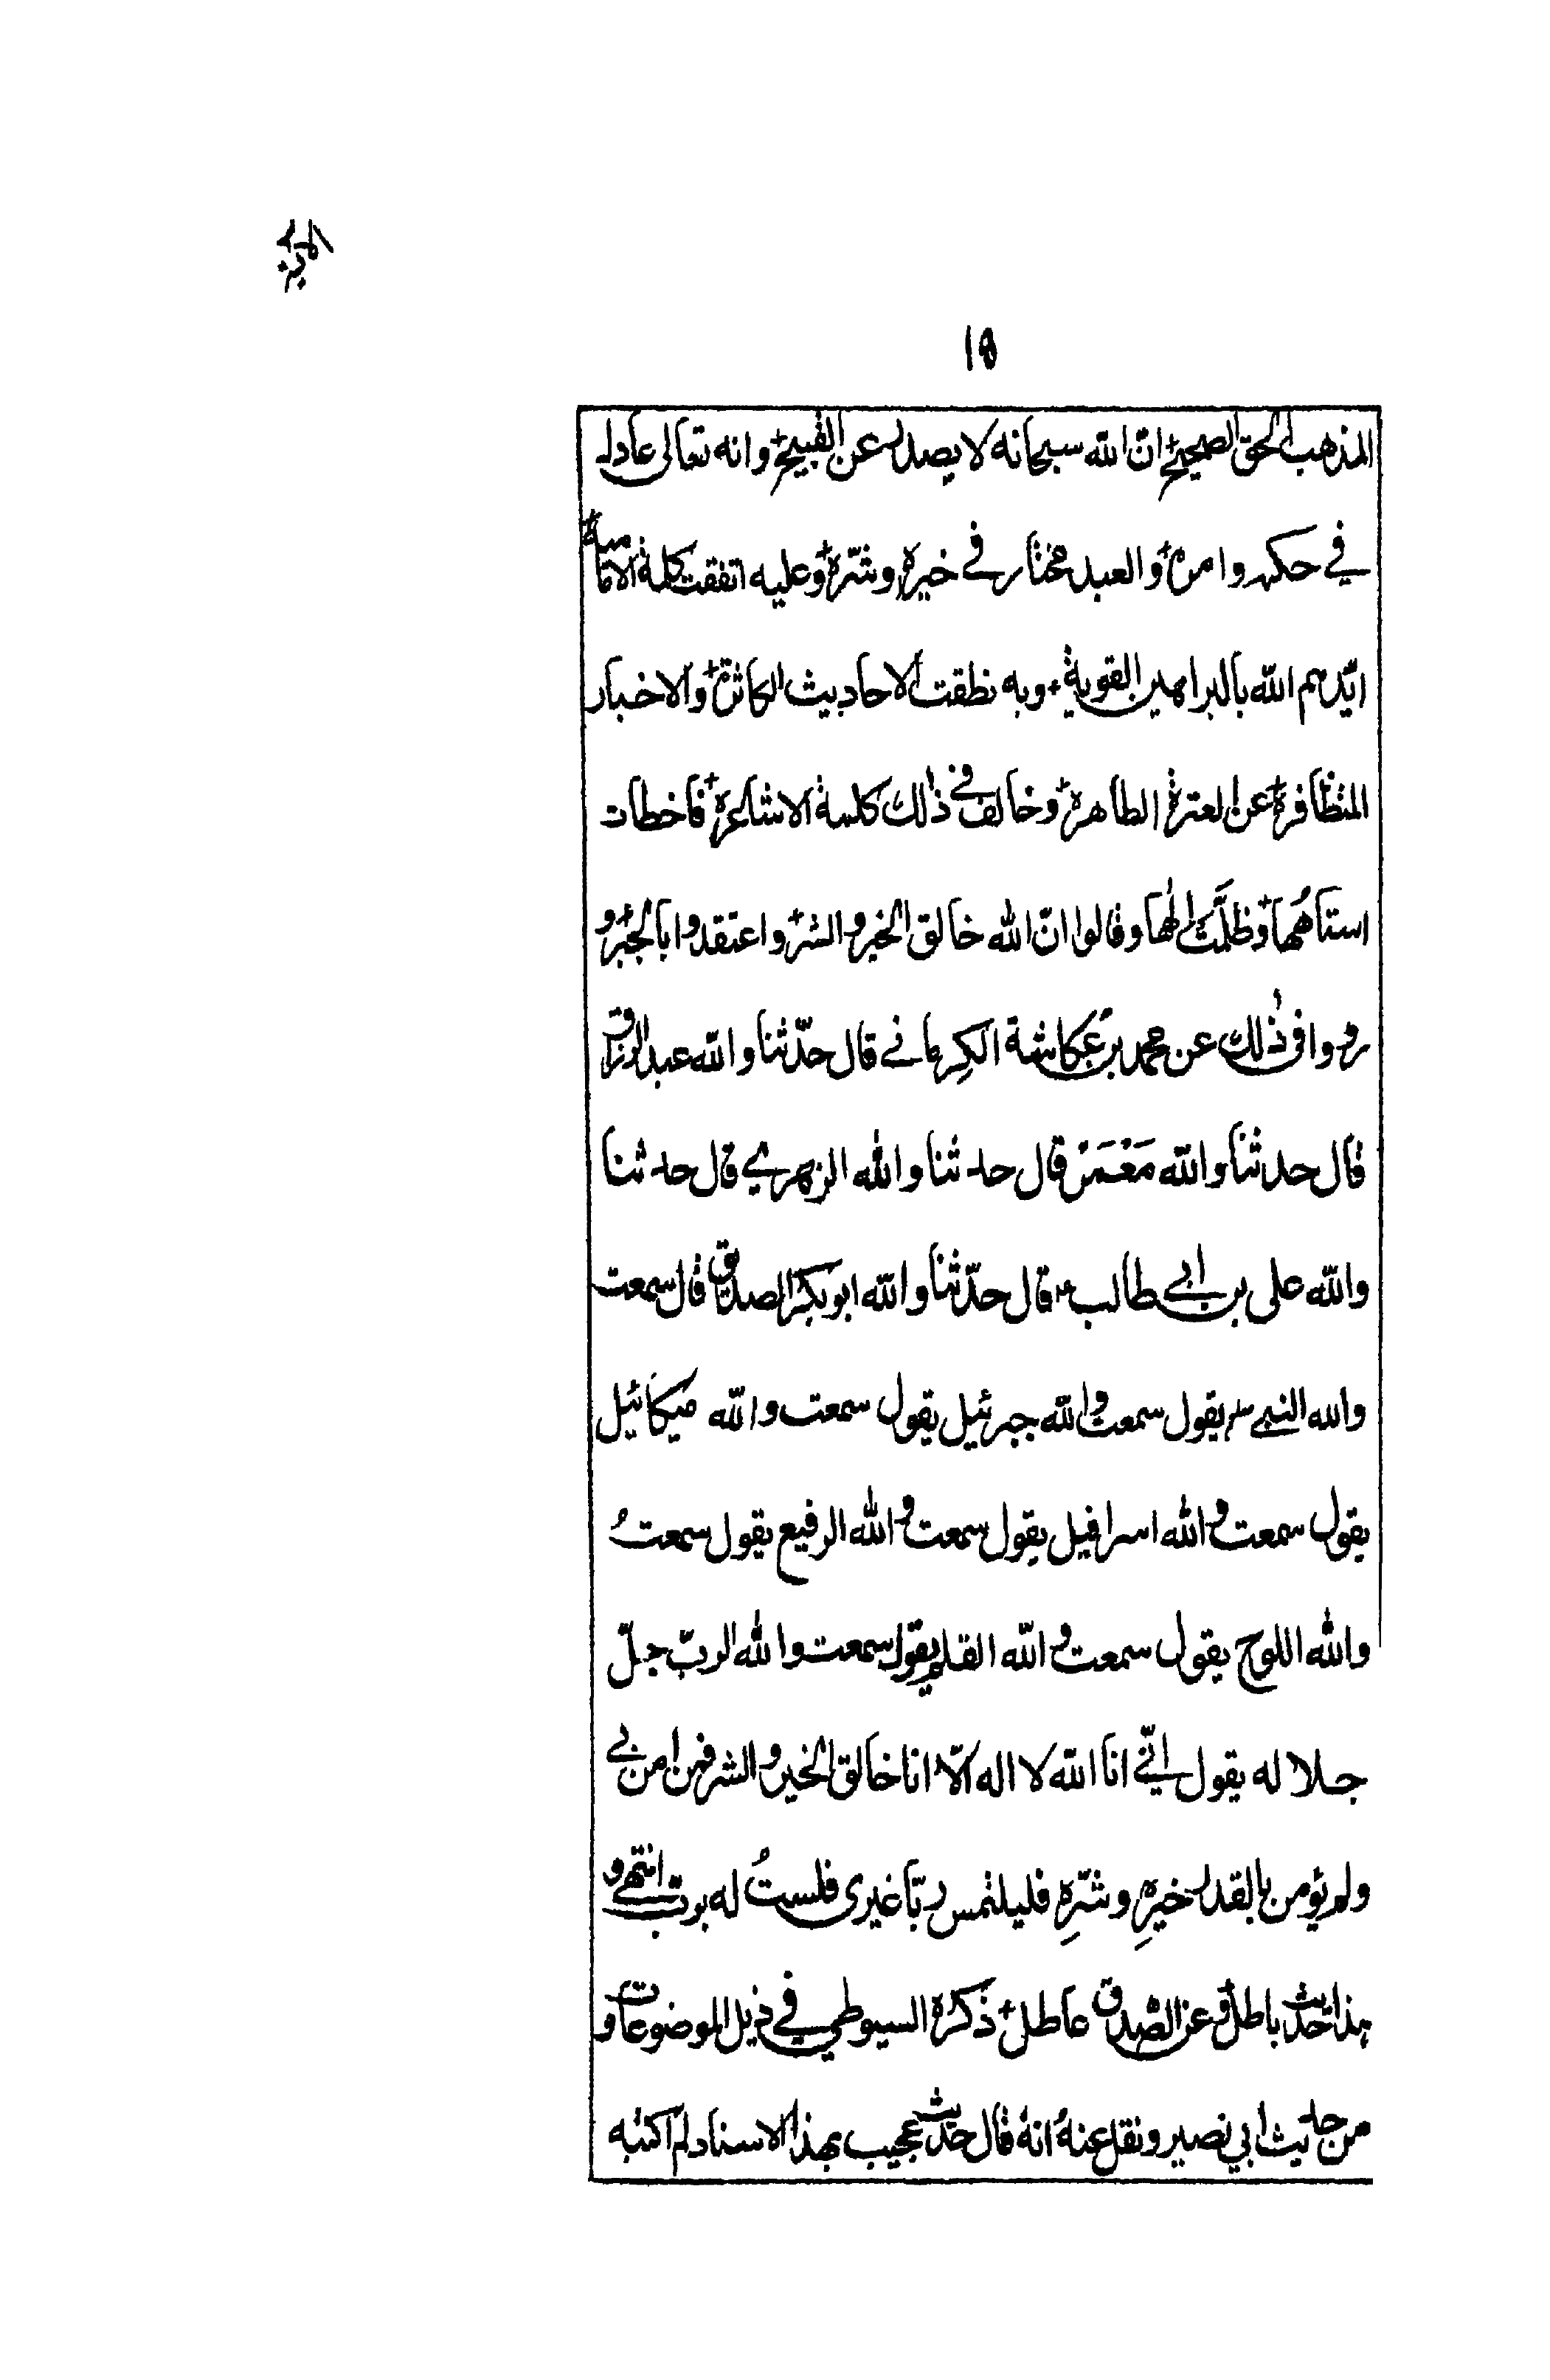 ١٥
المذهب الحق الصحيح+ انّ الله سبحانه لا يصدر عن القبيح+ وانه تعالى عادل
في حكمه وامره+ والعبد مختار في خيره وشرّه+ وعليه اتفقت كلمة الامامية+
ايّدهم الله بالبراهين القوية+ وبه نطقت الاحاديث الكاثرة+ والاخبار
المتظافرة+ عن العترة الطاهرة+ وخالف في ذلك كلمة الاشاعرة+ فاخطات
استاهُها+ وظلَّت الٰهها وقالوا انّ الله خالق الخير والشر+ واعتقدوا بالجبر+ و
رووا في ذلك عن محمد بن عُكاشة الكِرمانے قال حدّثنا والله عبد الرزاق
قال حدثنا والله مَعْمَرْ قال حدثنا والله الزهرے قال حدثنا
والله على بن ابے طالبؑ قال حدّثنا والله ابو بكر الصديق قال سمعت
والله النبےؐ يقول سمعت والله جبرئيل يقول سمعت والله ميكائيل
يقول سمعت والله اسرافيل يقول سمعت والله الرفيع يقول سمعتُ
والله اللوح يقول سمعت والله القلم يقول سمعت والله الربّ جلّ
جلاله يقول انّے انا الله لا اله الّا انا خالق الخير والشر فمن امن بے
ولم يؤمن بالقدر خيرِه وشرّهِ فليلتمس ربّا غيرى فلستُ له بربّ انتهے و
هذا حديث باطل+ وعن الصّدق عاطل+ ذكره السيوطي في ذيل الموضوعات و
من حديث ابي نصير ونقل عنهُ انهُ قال حديث عجيب بهذا الاسناد لم اكتبه